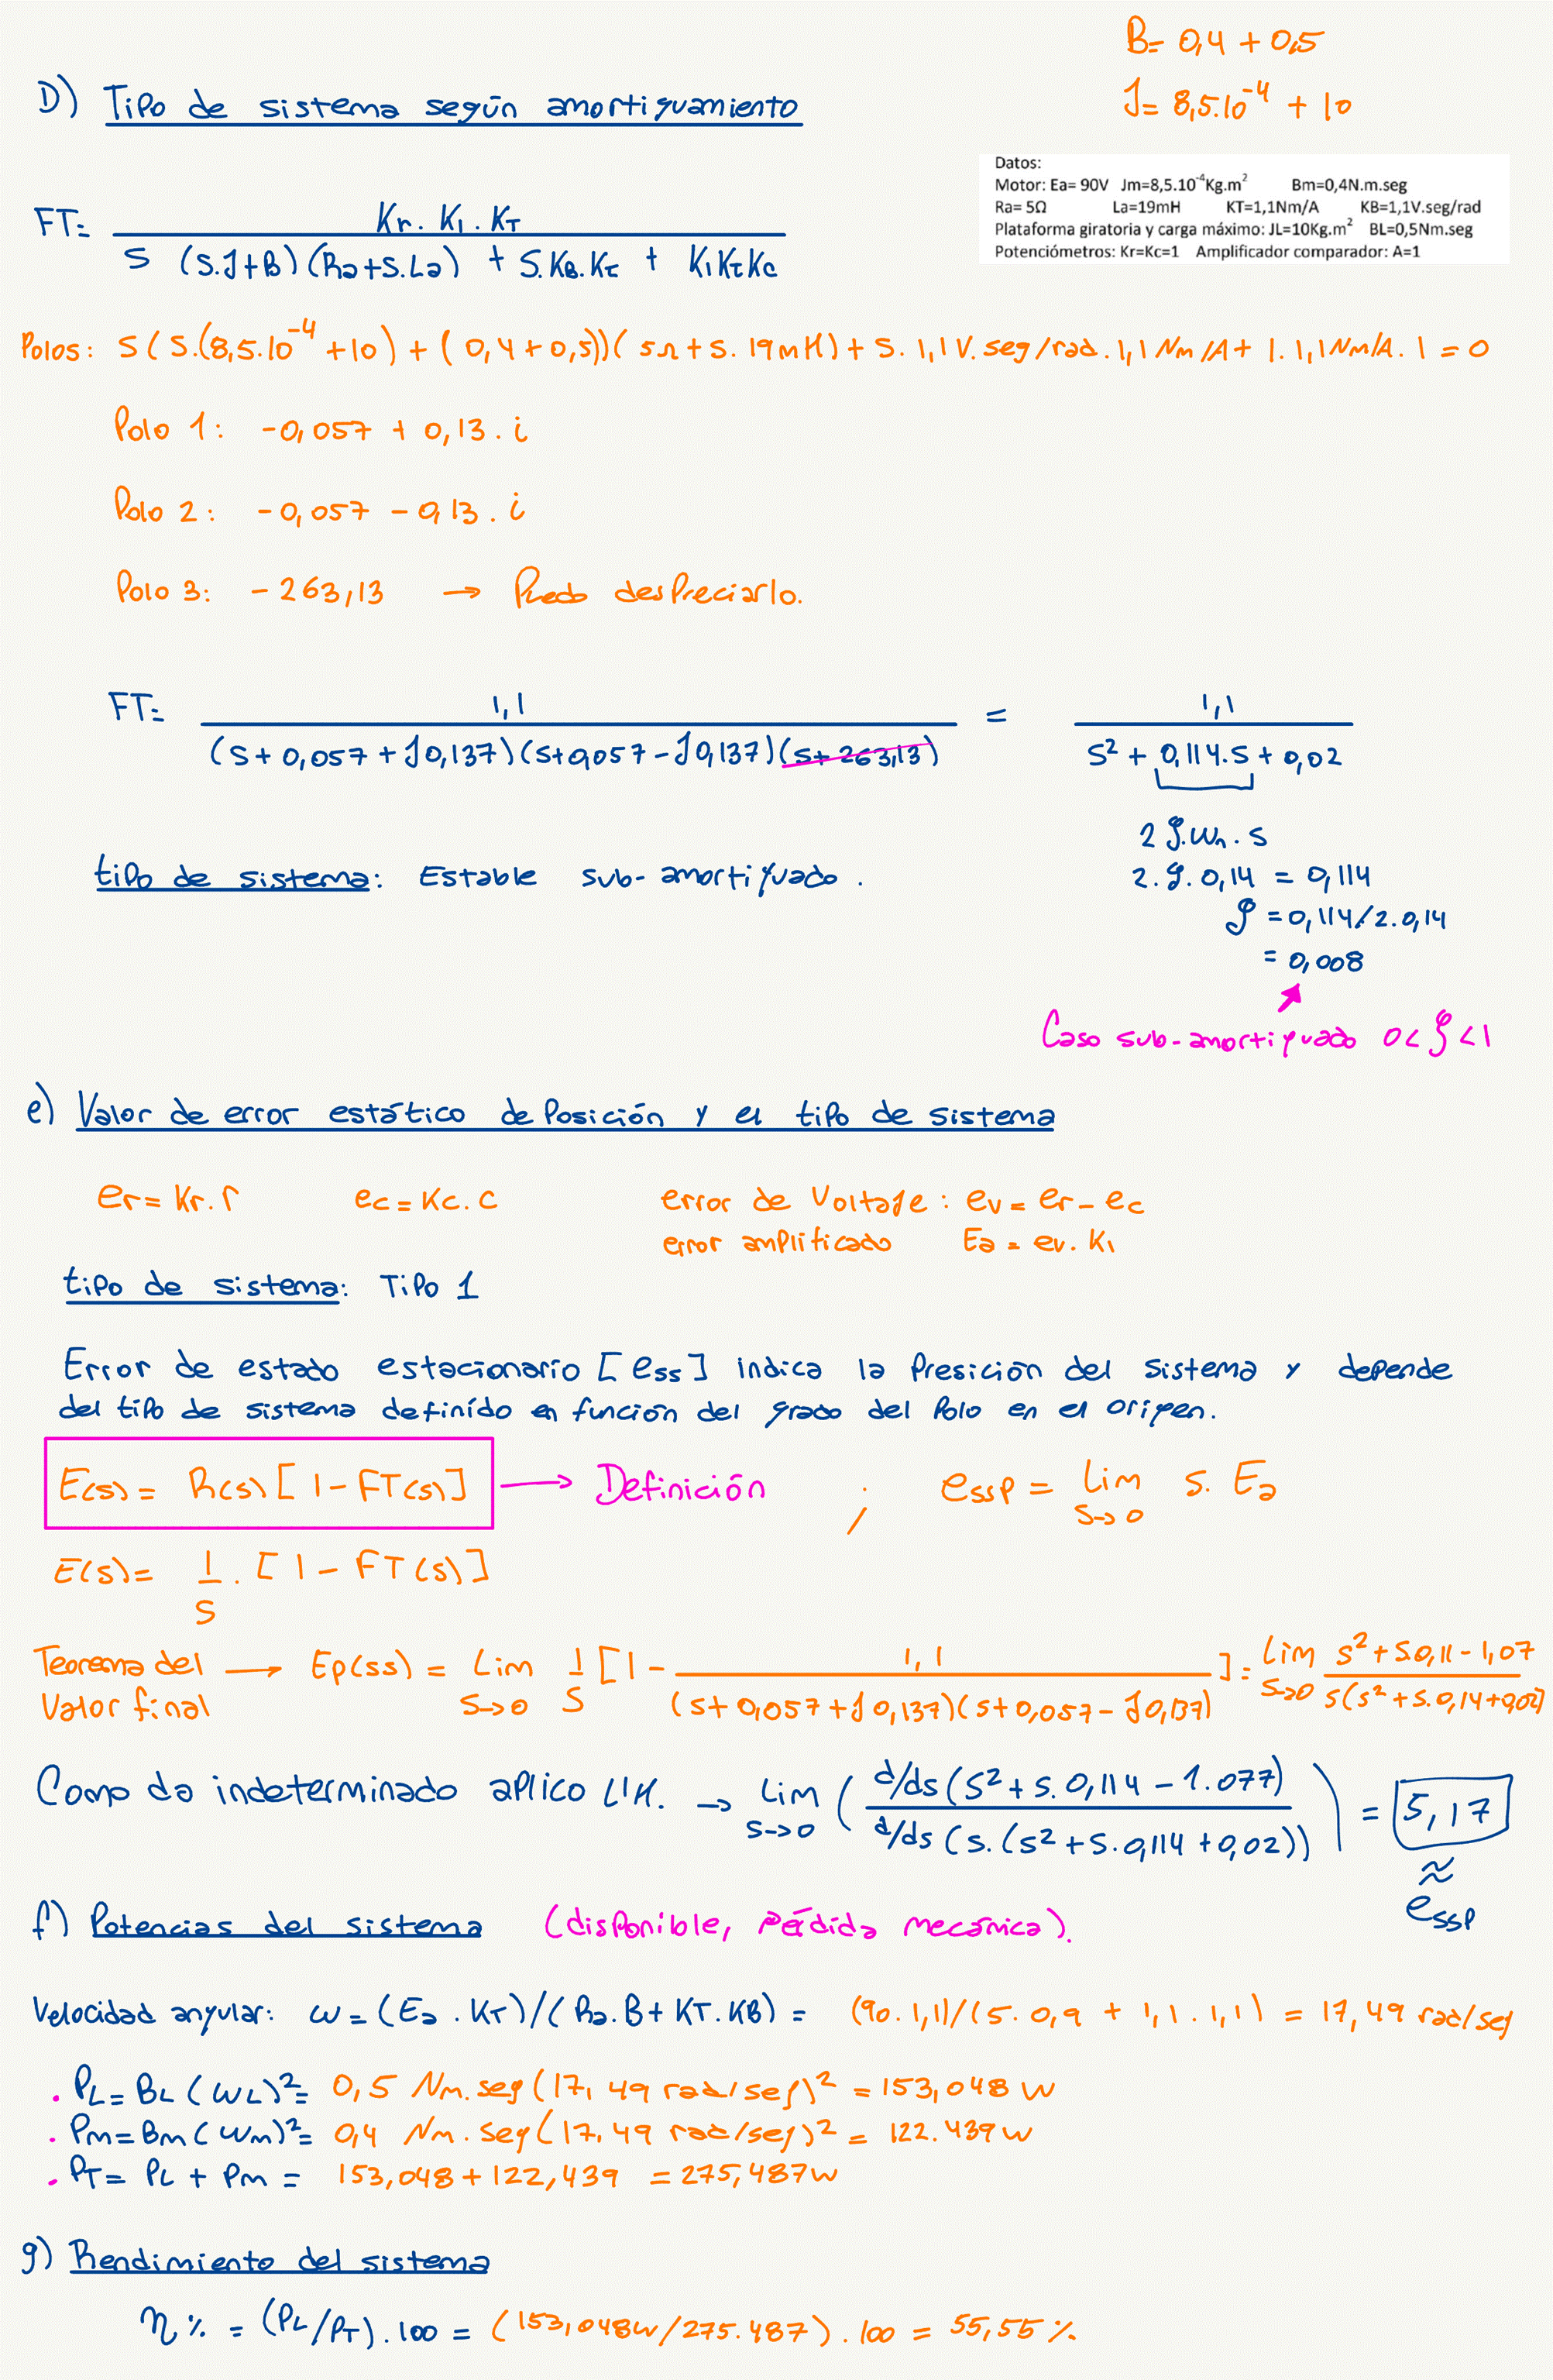 B= 0,4 + 0,5
D) Tipo de sistema según amortiguamiento
J= 8,5.10⁻⁴ + 10
Datos:
Motor: Ea= 90V Jm=8,5.10⁻⁴Kg.m² Bm=0,4N.m.seg
Ra= 5Ω La=19mH KT=1,1Nm/A KB=1,1V.seg/rad
Plataforma giratoria y carga máximo: JL=10Kg.m² BL=0,5Nm.seg
Potenciómetros: Kr=Kc=1 Amplificador comparador: A=1
FT= Kr. K1. KT
S (S.J+B)(Ra+S.La) + S.KB.Kt + K1KtKc
Polos: S(S.(8,5.10⁻⁴+10)+(0,4+0,5))(5Ω+S.19mH)+S.1,1V.seg/rad.1,1Nm/A+1.1,1Nm/A.1=0
Polo 1: -0,057 + 0,13.i
Polo 2: -0,057 - 0,13.i
Polo 3: -263,13 → Puedo despreciarlo.
FT= 1,1 = 1,1
(S+0,057+J0,137)(S+0,057-J0,137)(S+263,13) S²+0,114.S+0,02
2ζ.Wn.S
tipo de sistema: Estable sub-amortiguado. 2.ζ.0,14 = 0,114
ζ =0,114/2.0,14
= 0,008
Caso sub-amortiguado 0<ζ<1
e) Valor de error estático de Posición y el tipo de sistema
er= Kr.r ec=Kc.c error de Voltaje: ev= er-ec
error amplificado Ea= ev.K1
tipo de sistema: Tipo 1
Error de estado estacionario [ess] indica la Presición del sistema y depende
del tipo de sistema definído en función del grado del Polo en el origen.
E(s)= R(s)[1-FT(s)] → Definición ; essp= Lim S→0 S.Ea
E(s)= 1/S.[1-FT(s)]
Teorema del Valor final → Ep(ss) = Lim S→0 1/S [1- 1,1/((S+0,057+J0,137)(S+0,057-J0,137))]= Lim S→0 S²+S.0,11-1,07/S(S²+S.0,14+0,02)
Como da indeterminado aplico L'H. → Lim S→0 (d/ds(S²+S.0,114-1.077)/d/ds(S.(S²+S.0,114+0,02))) = 5,17
≈
essp
f) Potencias del sistema (disponible, Pérdida mecánica).
Velocidad angular: ω=(Ea.KT)/(Ra.B+KT.KB)= (90.1,1)/(5.0,9+1,1.1,1)=17,49 rad/seg
. PL=BL(WL)²= 0,5 Nm.seg(17,49 rad/seg)²=153,048W
. Pm=Bm(Wm)²= 0,4 Nm.seg(17,49 rad/seg)²= 122.439W
. PT= PL + Pm = 153,048+122,439 =275,487W
g) Rendimiento del sistema
η% = (PL/PT).100 = (153,048W/275.487).100 = 55,55%